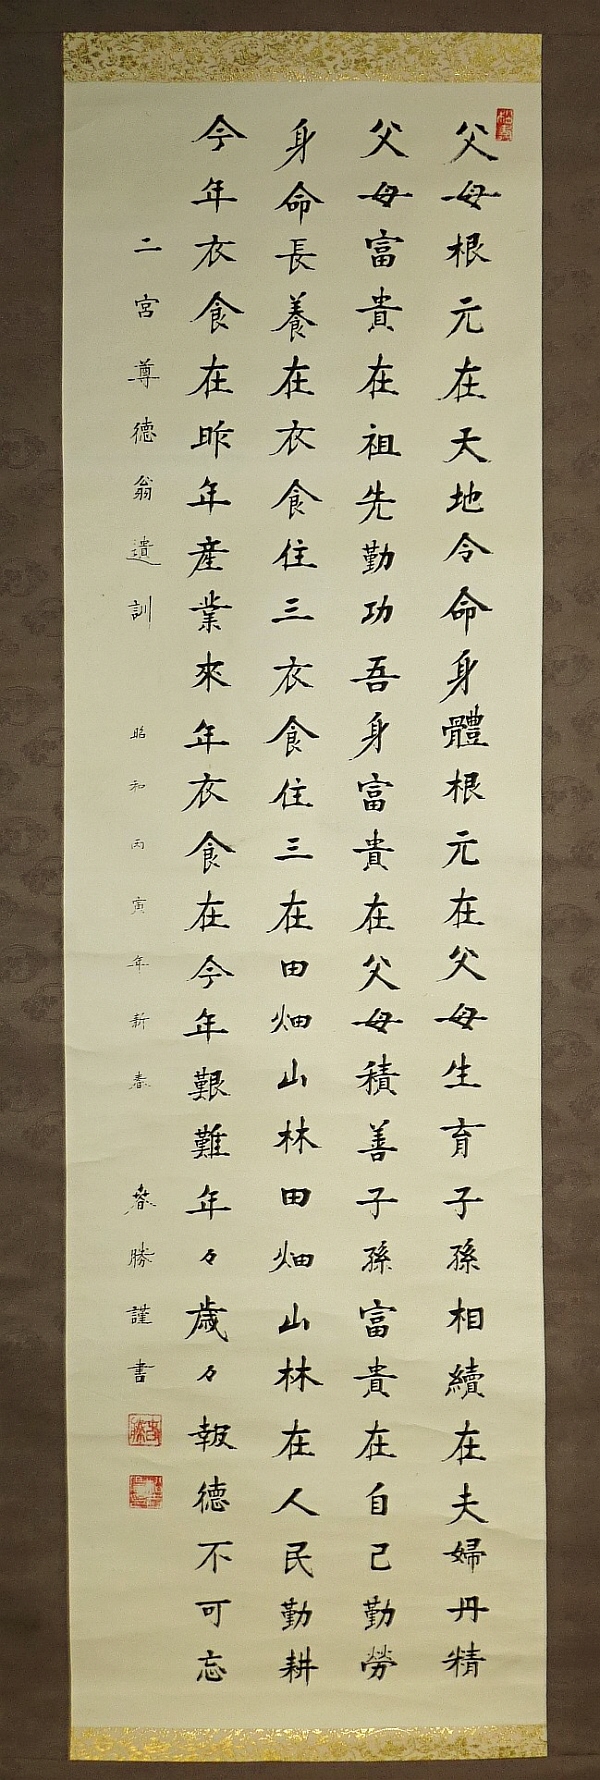 父母根元在天地令命身體根元在父母生育子孫相續在夫婦丹精
父母富貴在祖先勤功吾身富貴在父母積善子孫富貴在自己勤勞
身命長養在衣食住三衣食住三在田畑山林田畑山林在人民勤耕
今年衣食在昨年産業來年衣食在今年艱難年々歳々報徳不可忘
二宮尊徳翁遺訓 昭和丙寅年新春 春勝謹書